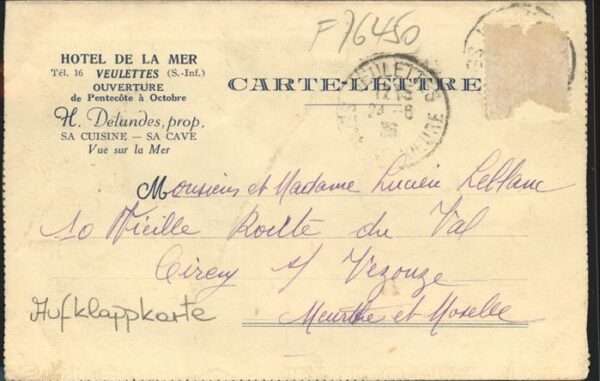 F 76450
HOTEL DE LA MER
Tél. 16 VEULETTES (S.-Inf.)
OUVERTURE
de Pentecôte à Octobre
H. Delandes, prop.
SA CUISINE — SA CAVE
Vue sur la Mer
CARTE-LETTRE
VEULETTES
Monsieur et Madame Lucien Leblanc
10 Vieille Route du Val
Cirey s/ Vezouze
Meurthe et Moselle
Aufklappkarte